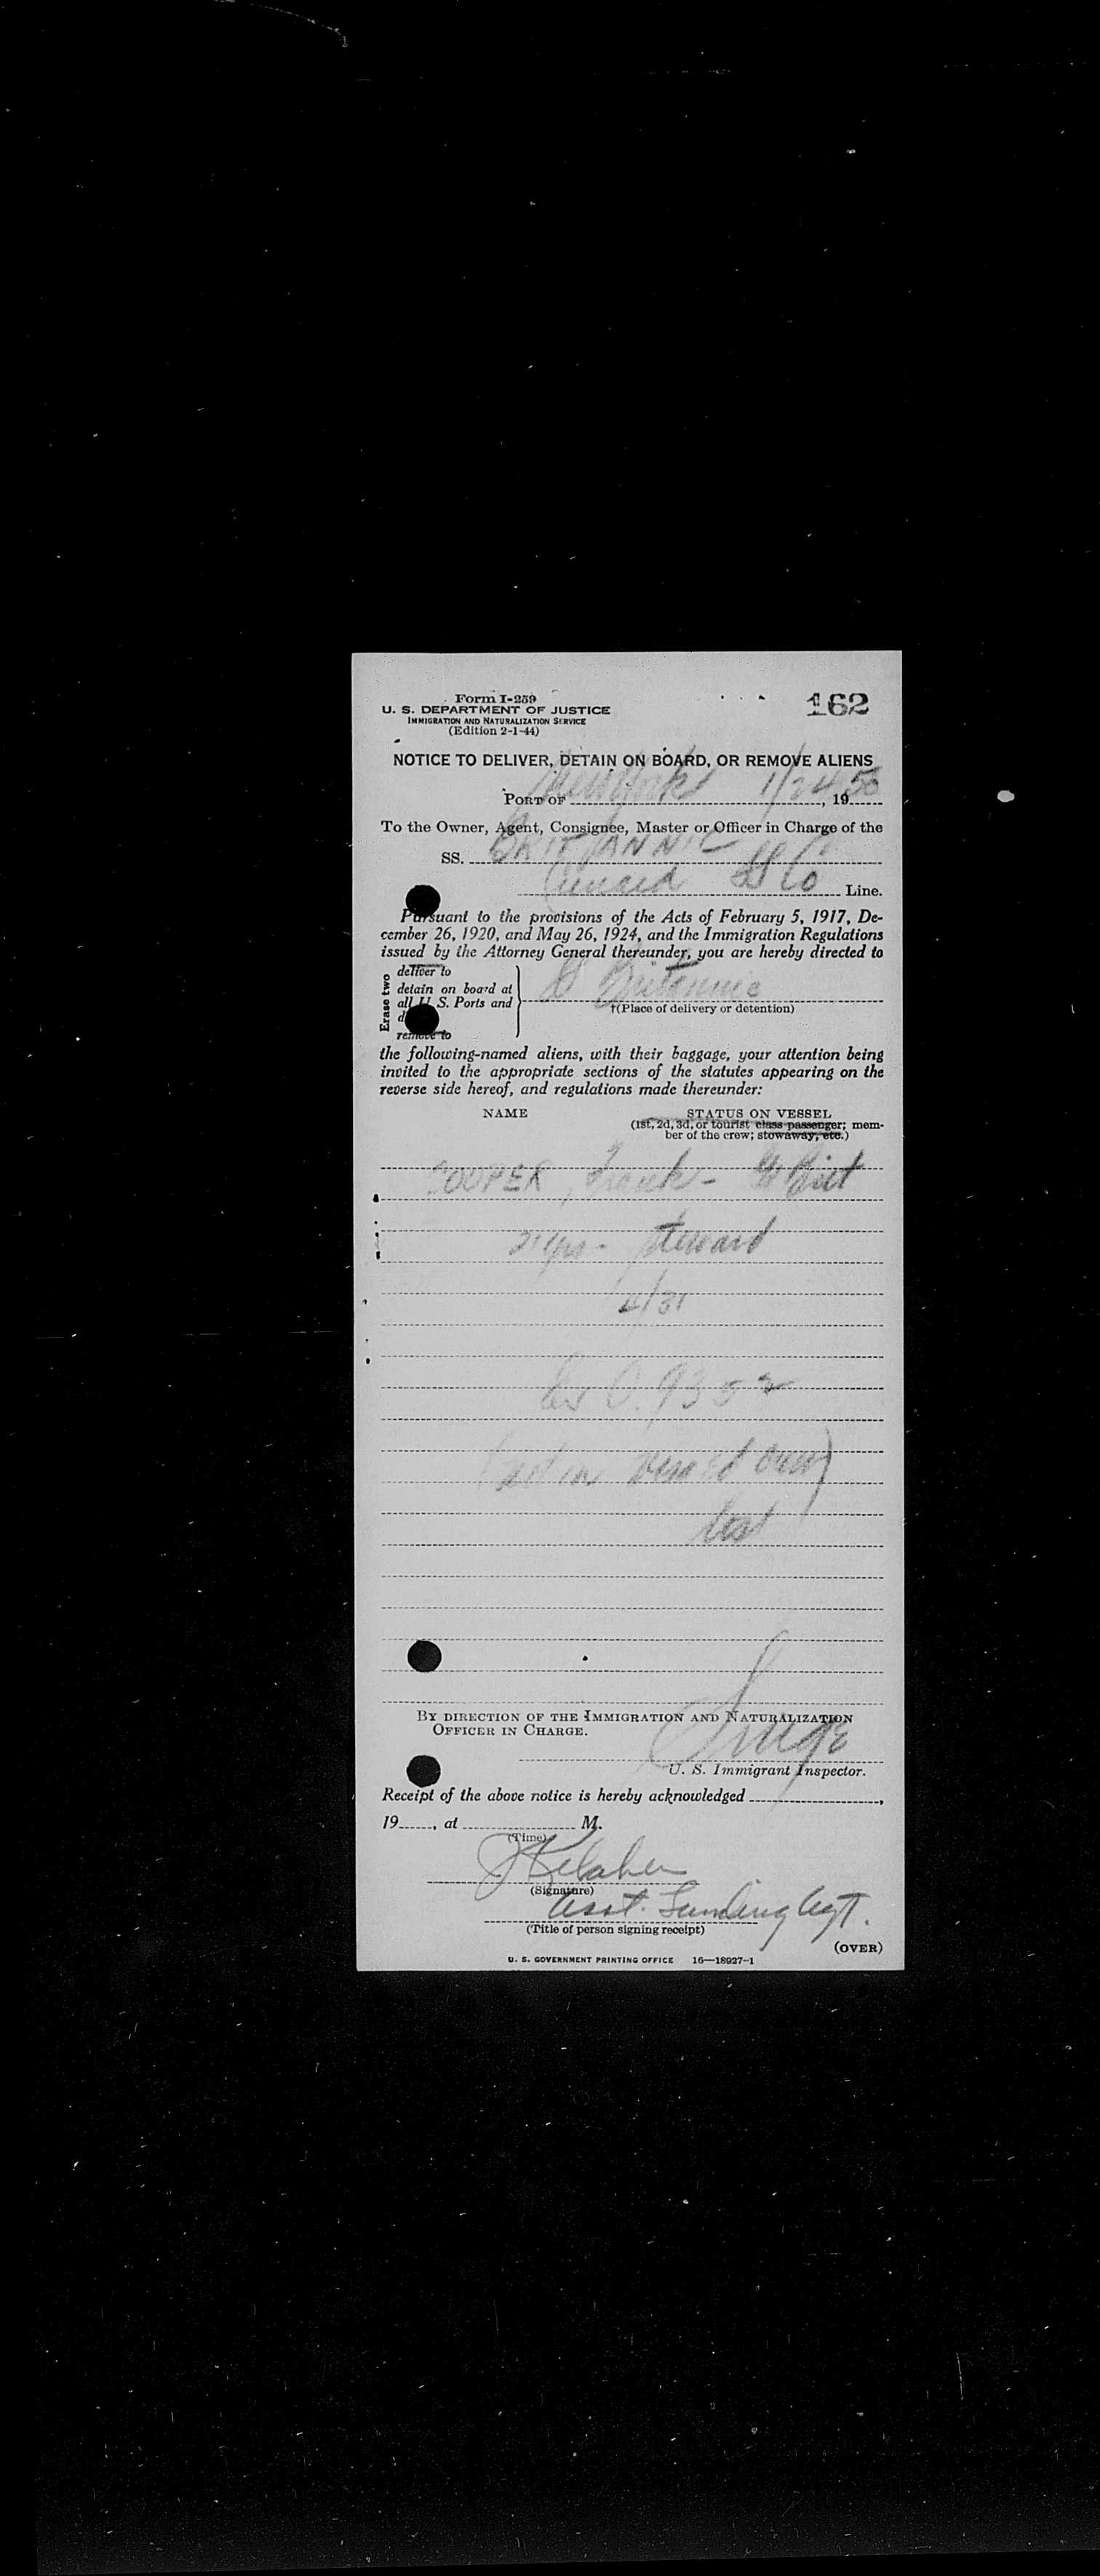 Form I-259
162
U. S. DEPARTMENT OF JUSTICE
IMMIGRATION AND NATURALIZATION SERVICE
(Edition 2-1-44)
NOTICE TO DELIVER, DETAIN ON BOARD, OR REMOVE ALIENS
PORT OF New York 1/24, 1950
To the Owner, Agent, Consignee, Master or Officer in Charge of the
SS. BRITANNIC
Cunard SS Co Line.
Pursuant to the provisions of the Acts of February 5, 1917, De-
cember 26, 1920, and May 26, 1924, and the Immigration Regulations
issued by the Attorney General thereunder, you are hereby directed to
Erase two
deliver to
detain on board at
all U. S. Ports and
remove to
Britannic
†(Place of delivery or detention)
the following-named aliens, with their baggage, your attention being
invited to the appropriate sections of the statutes appearing on the
reverse side hereof, and regulations made thereunder:
NAME STATUS ON VESSEL
(1st, 2d, 3d, or tourist class passenger; mem-
ber of the crew; stowaway, etc.)
COOPER, Frank - Brit
21 yrs - Steward
4/31
Ex O. 9352
list
BY DIRECTION OF THE IMMIGRATION AND NATURALIZATION
OFFICER IN CHARGE.
U. S. Immigrant Inspector.
Receipt of the above notice is hereby acknowledged ,
19 , at M.
(Time)
(Signature)
Asst. Landing Agt.
(Title of person signing receipt)
(OVER)
U. S. GOVERNMENT PRINTING OFFICE 16—18927-1